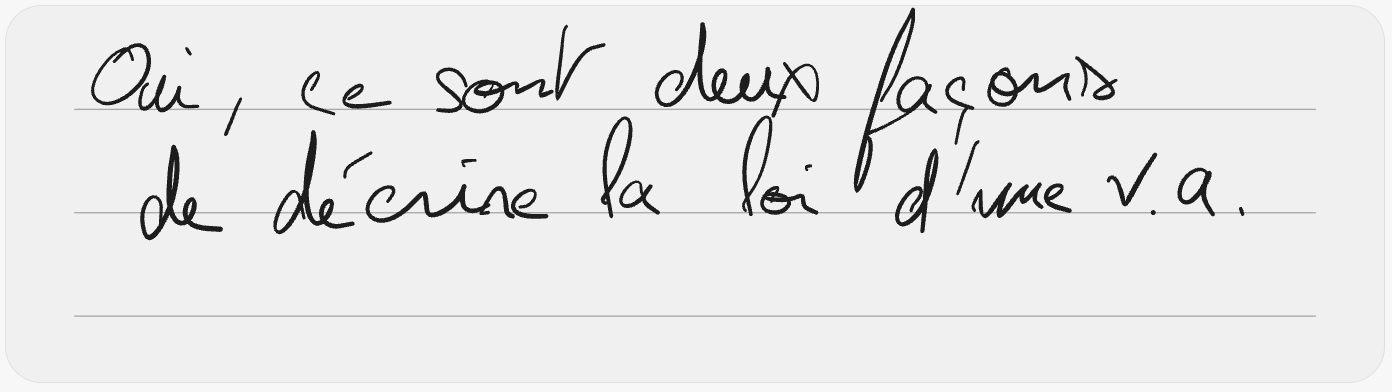 Oui, ce sont deux façons
de décrire la loi d'une v.a.